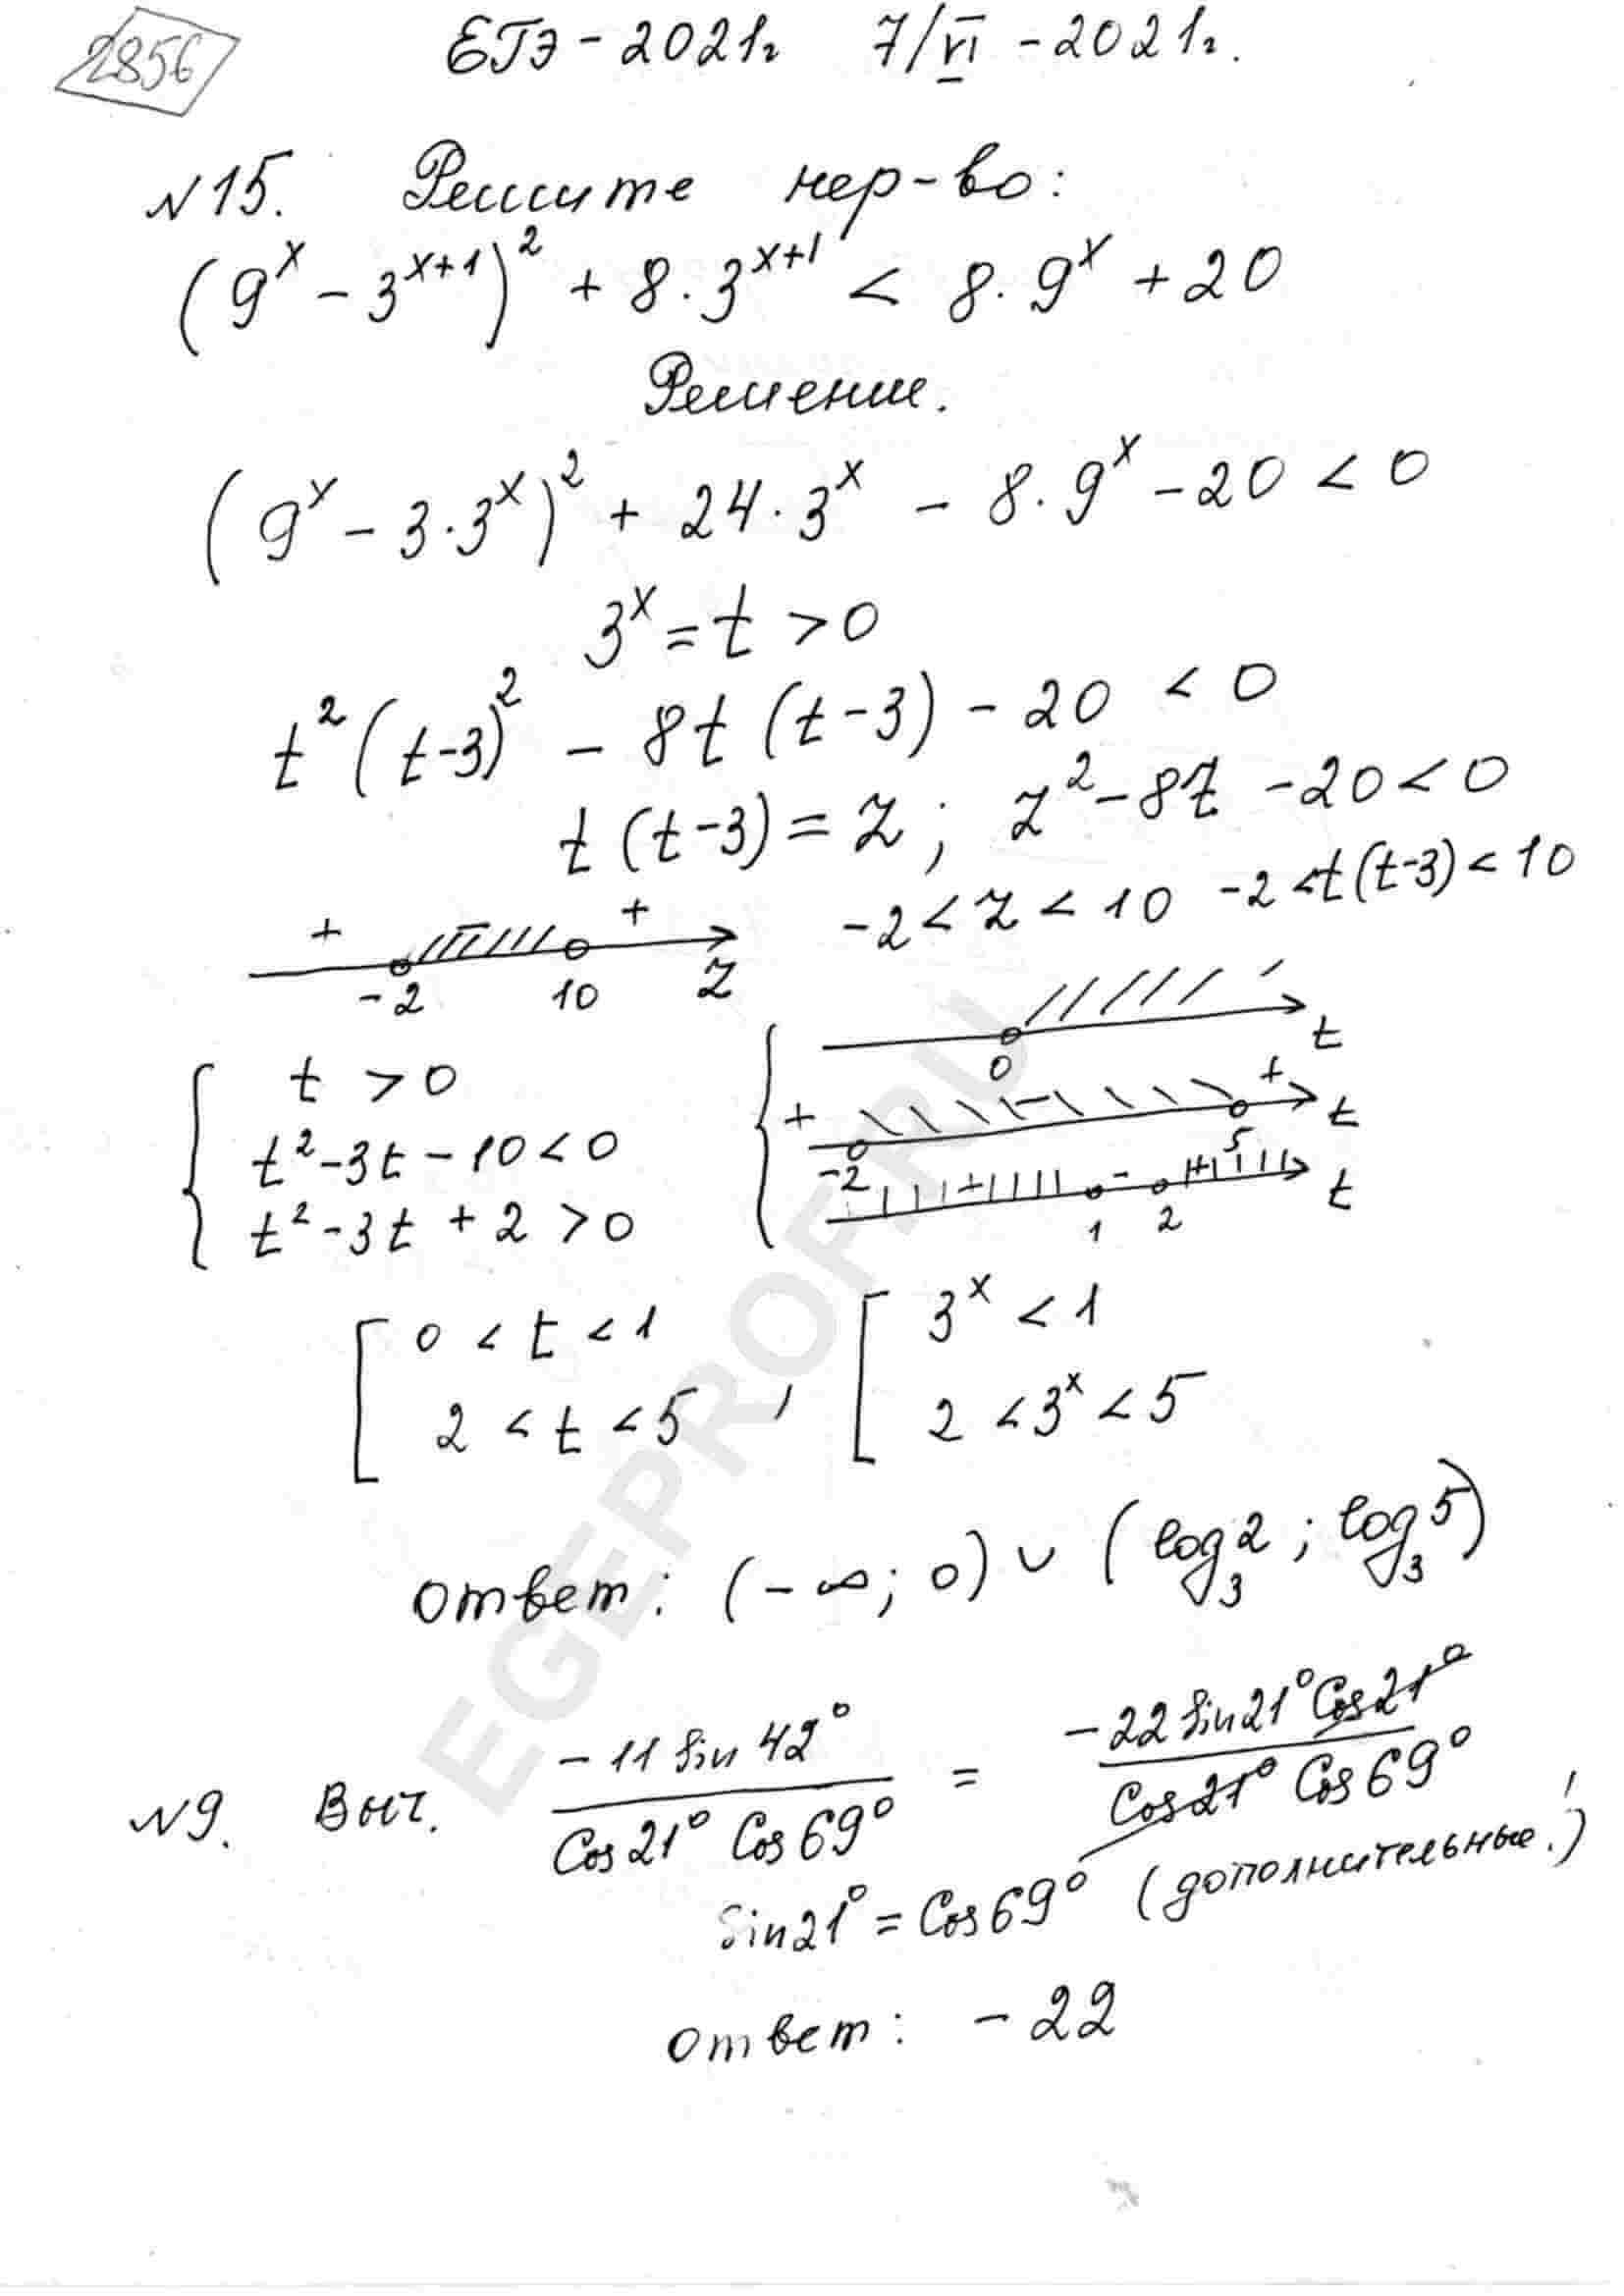 2856
ЕГЭ - 2021г 7/VI - 2021г.
№15. Решите нер-во:
(9^x - 3^(x+1))^2 + 8·3^(x+1) < 8·9^x + 20
Решение.
(9^x - 3·3^x)^2 + 24·3^x - 8·9^x - 20 < 0
3^x = t > 0
t^2(t-3)^2 - 8t(t-3) - 20 < 0
t(t-3) = z; z^2 - 8z - 20 < 0
-2 < z < 10 -2 < t(t-3) < 10
+ - +
-2 10 z
0 t
{ t > 0
t^2 - 3t - 10 < 0
t^2 - 3t + 2 > 0
+ - + t
-2 5
+ - + t
1 2
[ 0 < t < 1
2 < t < 5 ,
[ 3^x < 1
2 < 3^x < 5
Ответ: (-∞; 0) ∪ (log_3 2; log_3 5)
№9. Выч. -11 Sin 42° / (Cos 21° Cos 69°) = -22 Sin 21° Cos 21° / (Cos 21° Cos 69°)
Sin 21° = Cos 69° (дополнительные!)
Ответ: -22
EGEPROF.RU